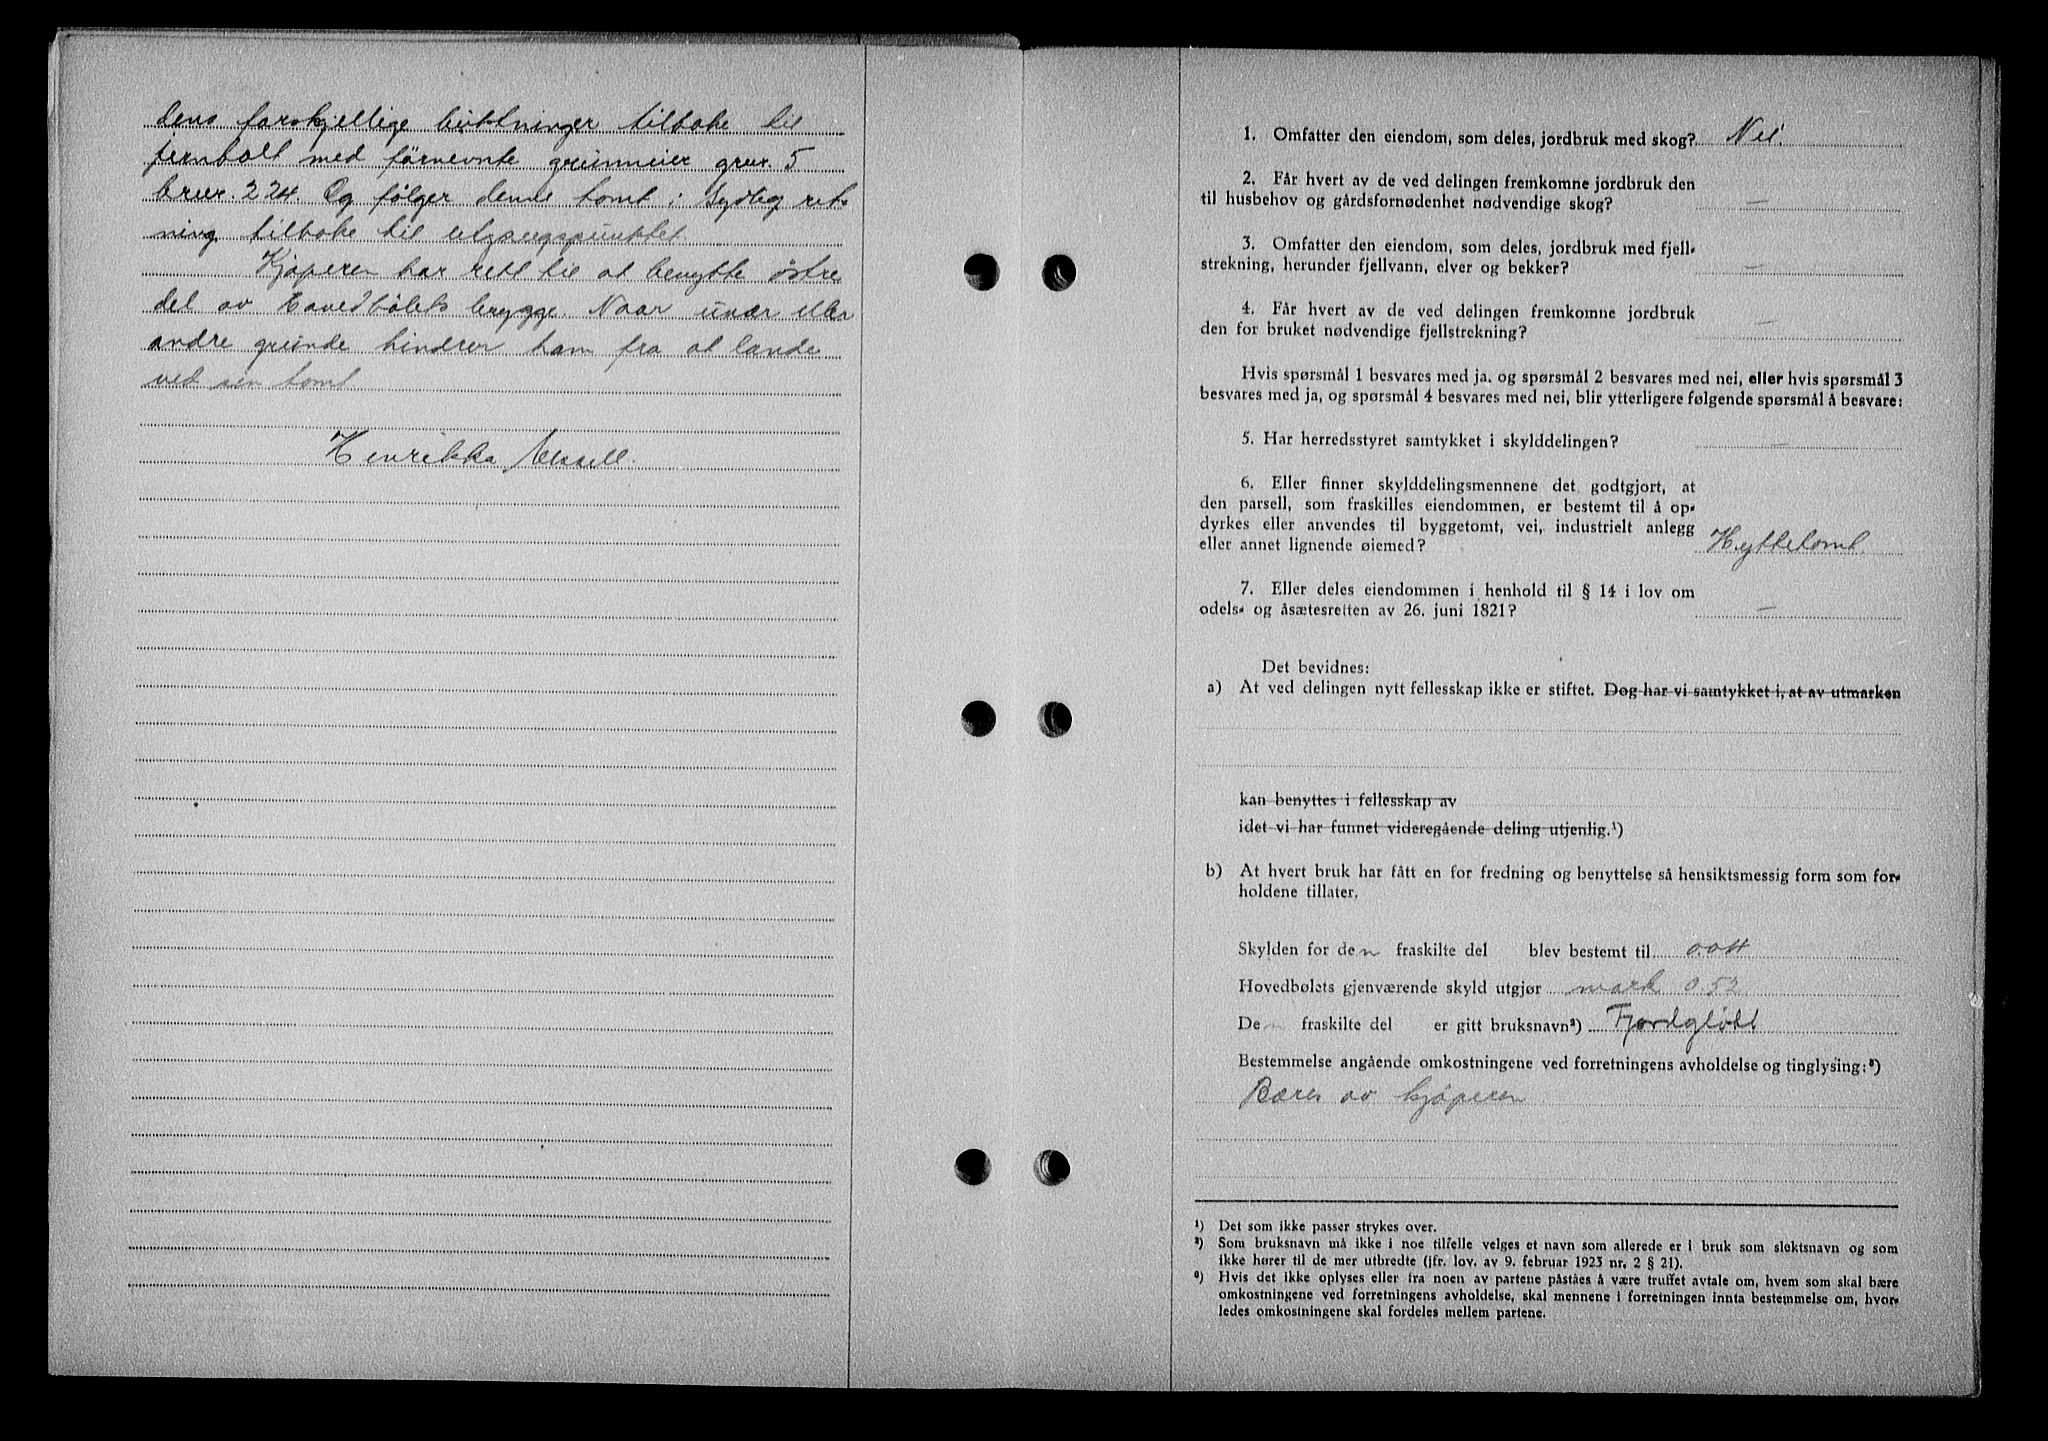 dens forskjellige buktninger tilbake til
jernbolt med førnevnte grunneier gnr. 5
brnr. 224. Og følger denne tomt i sydlig ret-
ning tilbake til utgangspunktet.
Kjøperen har rett til at benytte østre
del av hovedbølets brygge. Naar uvær eller
andre grunde hindrer ham fra at lande
ved sin tomt
Henrikka
1. Omfatter den eiendom, som deles, jordbruk med skog? Nei.
2. Får hvert av de ved delingen fremkomne jordbruk den
til husbehov og gårdsfornødenhet nødvendige skog? —
3. Omfatter den eiendom, som deles, jordbruk med fjell-
strekning, herunder fjellvann, elver og bekker? —
4. Får hvert av de ved delingen fremkomne jordbruk
den for bruket nødvendige fjellstrekning? —
Hvis spørsmål 1 besvares med ja, og spørsmål 2 besvares med nei, eller hvis spørsmål 3
besvares med ja, og spørsmål 4 besvares med nei, blir ytterligere følgende spørsmål å besvare:
5. Har herredsstyret samtykket i skylddelingen? —
6. Eller finner skylddelingsmennene det godtgjort, at
den parsell, som fraskilles eiendommen, er bestemt til å op-
dyrkes eller anvendes til byggetomt, vei, industrielt anlegg
eller annet lignende øiemed? Hyttetomt.
7. Eller deles eiendommen i henhold til § 14 i lov om
odels- og åsætesretten av 26. juni 1821? —
Det bevidnes:
a) At ved delingen nytt fellesskap ikke er stiftet. Dog har vi samtykket i, at av utmarken
kan benyttes i fellesskap av
idet vi har funnet videregående deling utjenlig.¹)
b) At hvert bruk har fått en for fredning og benyttelse så hensiktsmessig form som for-
holdene tillater.
Skylden for den fraskilte del blev bestemt til 0.04
Hovedbølets gjenværende skyld utgjør mark 0.52
Den fraskilte del er gitt bruksnavn²) Fjordgløtt
Bestemmelse angående omkostningene ved forretningens avholdelse og tinglysing:³)
Bæres av kjøperen
¹) Det som ikke passer strykes over.
²) Som bruksnavn må ikke i noe tilfelle velges et navn som allerede er i bruk som slektsnavn og som
ikke hører til de mer utbredte (jfr. lov. av 9. februar 1923 nr. 2 § 21).
³) Hvis det ikke oplyses eller fra noen av partene påståes å være truffet avtale om, hvem som skal bære
omkostningene ved forretningens avholdelse, skal mennene i forretningen innta bestemmelse om, hvor-
ledes omkostningene skal fordeles mellem partene.